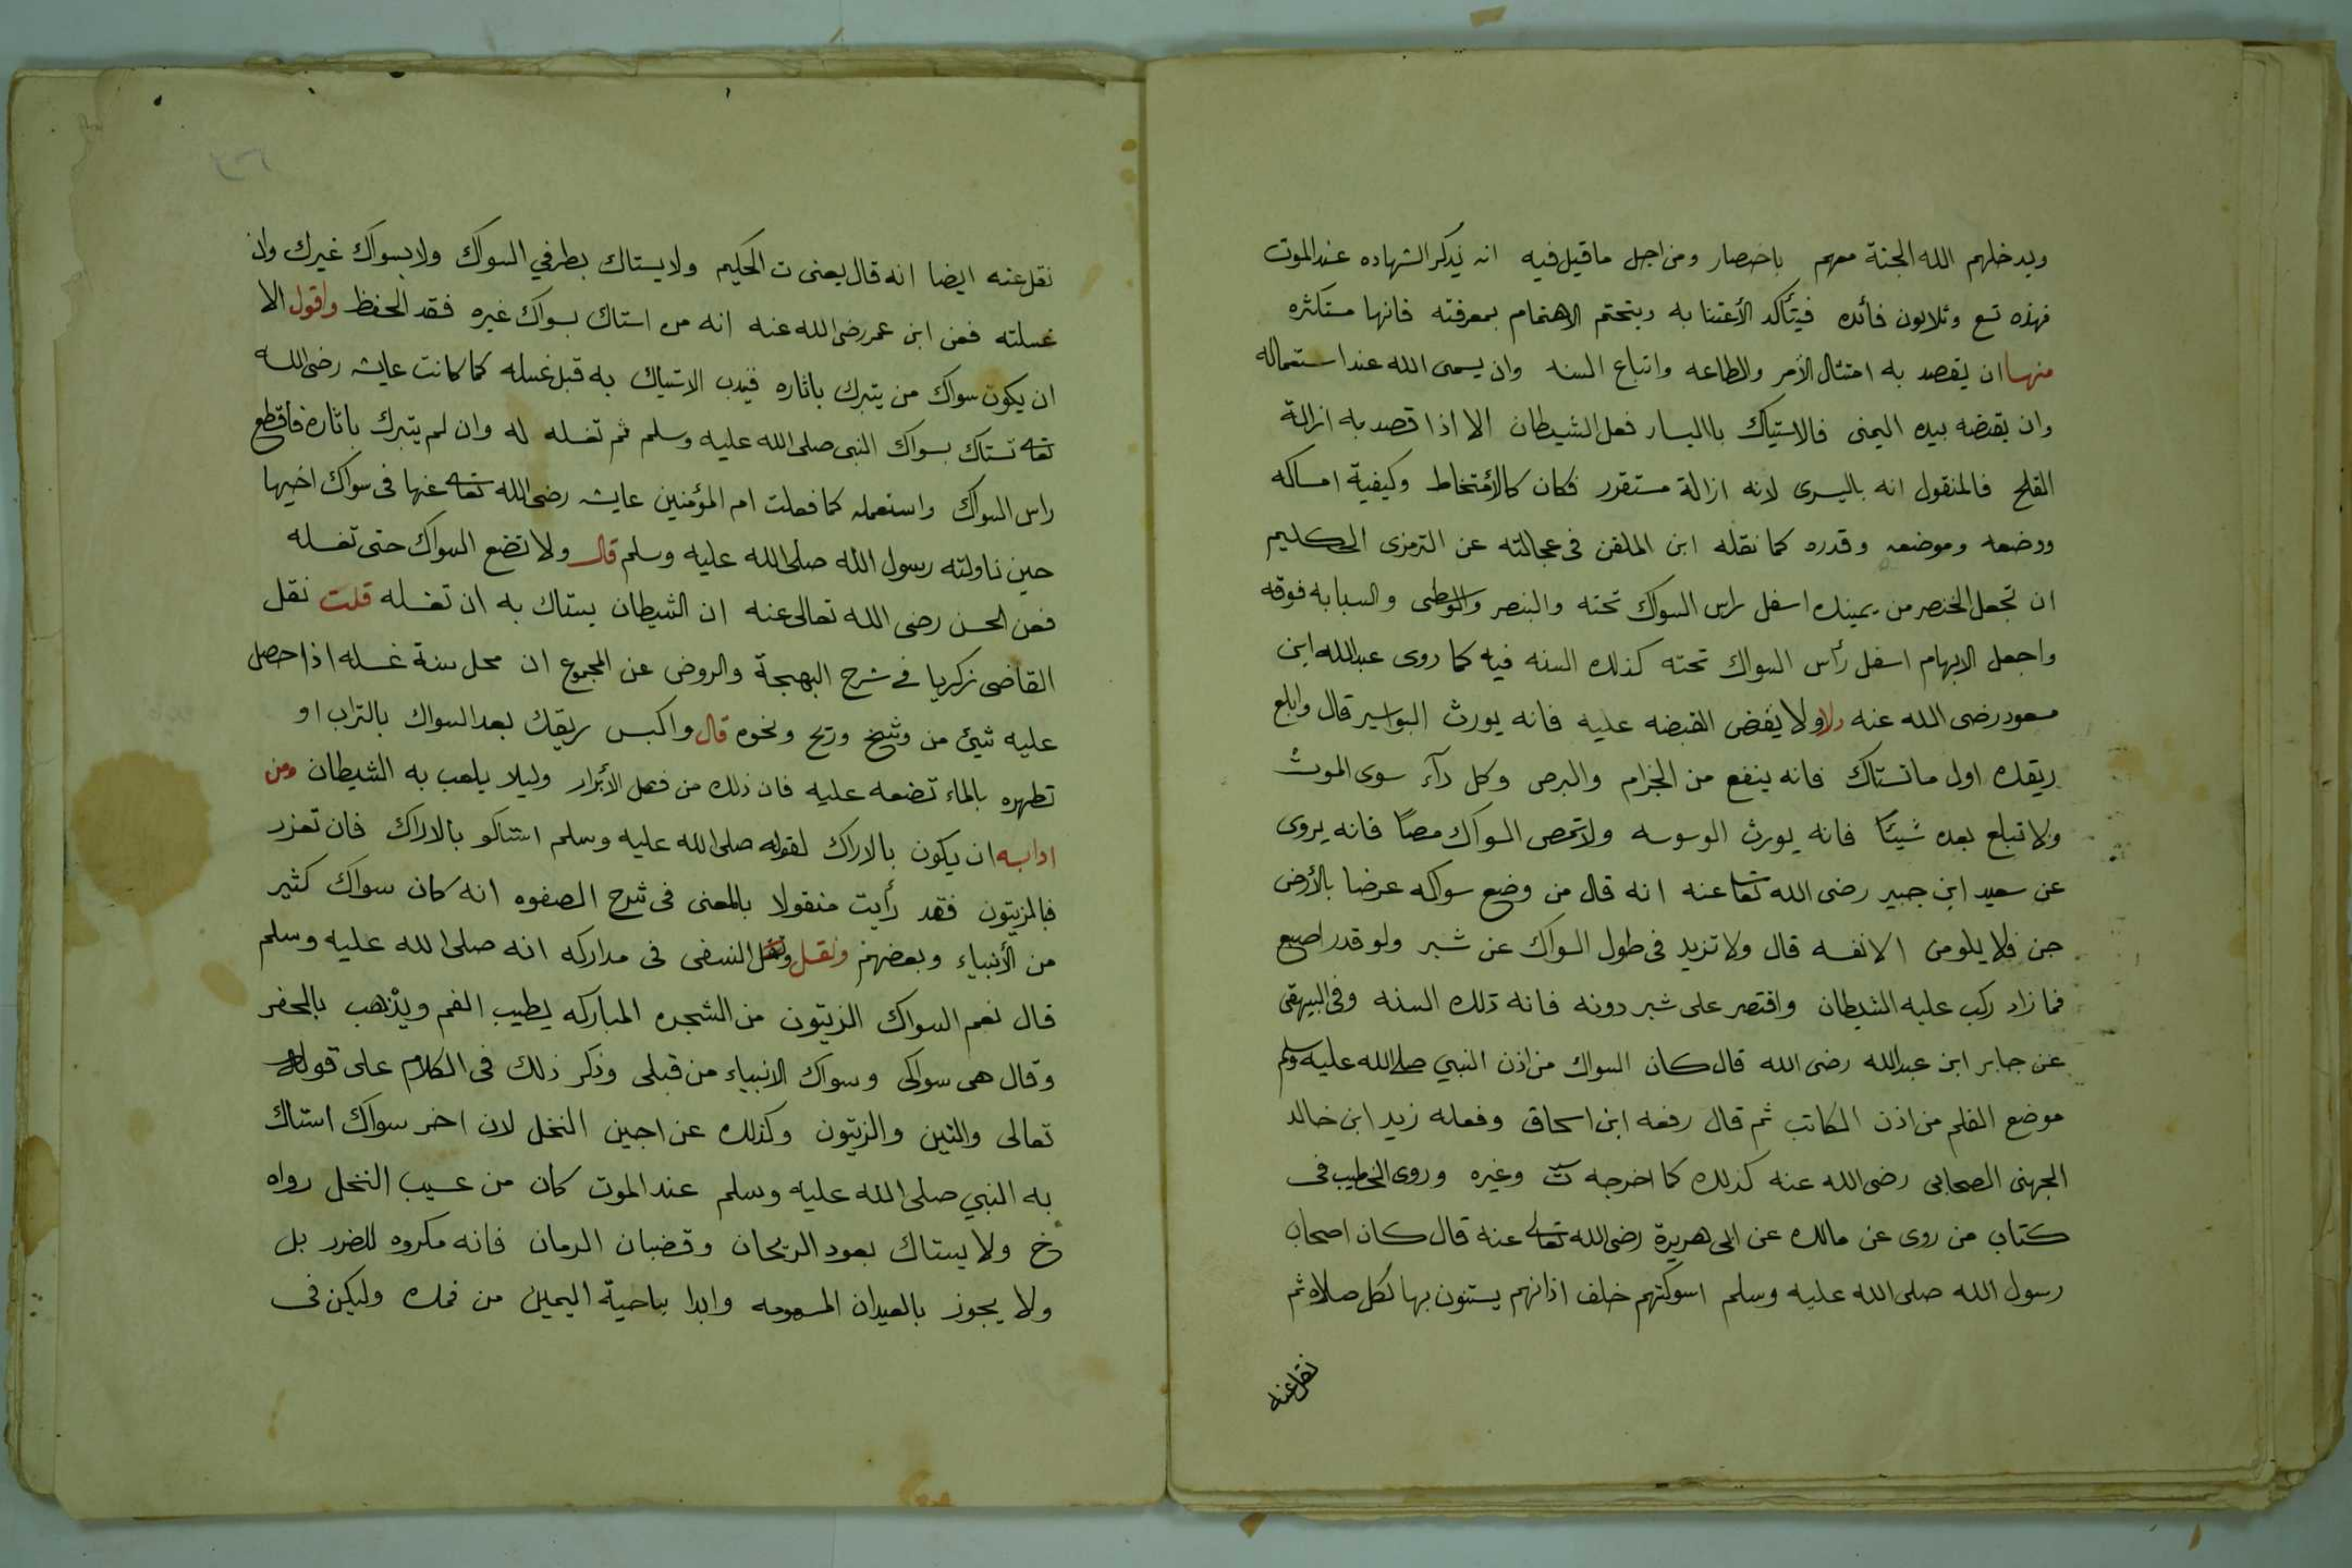 ويدخلهم الله الجنة معهم باختصار ومن اجل ماقيل فيه انه يذكر الشهاده عند الموت
فهذه تسع وثلاثون فأئده فيتأكد الأعتنا به ويتحتم الاهتمام بمعرفته فانها مستكثره
منها ان يقصد به امتثال الأمر والطاعه واتباع السنه وان يسمى الله عند استعماله
وان يقبضه بيده اليمنى فالاستياك باليسار فعل الشيطان الا اذا قصد به ازالة
القلح فالمنقول انه باليسرى لانه ازالة مستقرر فكان كالأمتخاط وكيفية امساكه
ووضعه وموضعه وقدره كما نقله ابن الملقن فى عجالته عن الترمزى الحكليم
ان تجعل الخنصر من يمينك اسفل راس السواك تحته والبنصر والوطسى والسبابه فوقه
واجعل الابهام اسفل رأس السواك تحته كذلك السنه فيه كما روى عبدالله ابن
مسعود رضى الله عنه ولا ولا يقبض القبضه عليه فانه يورث البواسير قال وابلع
ريقك اول ما تستاك فانه ينفع من الجزام والبرص وكل دآء سوى الموت
ولا تبلع بعده شيئا فانه يورث الوسوسه ولا تمص السواك مصا فانه يروى
عن سعيد ابن جبير رضى الله تعا عنه انه قال من وضع سواكه عرضا بالأرض
جن فلا يلومن الا نفسه قال ولا تزيد فى طول السواك عن شبر ولو قدر اصبع
فما زاد ركب عليه الشيطان واقتصر على شبر دونه فانه ذلك السنه وفى البيهقى
عن جابر ابن عبدالله رضى الله قال كان السواك من اذن النبي صلى الله عليه وسلم
موضع القلم من اذن الكاتب ثم قال رفعه ابن اسحاق وفعله زيد ابن خالد
الجهنى الصحابى رضى الله عنه كذلك كما اخرجه ت وغيره وروى الخطيب فى
كتاب من روى عن مالك عن ابى هريرة رضى الله تعا عنه قال كان اصحاب
رسول الله صلى الله عليه وسلم اسوكتهم خلف اذانهم يستنون بها لكل صلاه ثم
نقل عنه
نقل عنه ايضا انه قال يعنى ت الحكيم ولا يستاك بطرفي السواك ولا بسواك غيرك وان
غسلته فعن ابن عمر رضى الله عنه انه من استاك بسواك غيره فقد الحفظ واقول الا
ان يكون سواك من يتبرك باثاره فيندب الاستياك به قبل غسله كما كانت عايشه رضى الله
تعا تستاك بسواك النبى صلى الله عليه وسلم ثم تغسله له وان لم يتبرك باثاره فاقطع
راس السواك واستعمله كما فعلت ام المؤمنين عايشه رضى الله تعا عنها فى سواك اخيها
حين ناولته رسول الله صلى الله عليه وسلم قال ولا تضع السواك حتى تغسله
فعن الحسن رضى الله تعالى عنه ان الشيطان يستاك به ان تغسله قلت نقل
القاضى زكريا فى شرح البهجة والروض عن المجموع ان محل سنة غسله اذا حصل
عليه شئ من وشخ وريح ونحوه قال واكبس ريقك بعد السواك بالتراب او
تطهره بالماء تضعه عليه فان ذلك من فعل الأبرار وليلا يلعب به الشيطان ومن
ادابه ان يكون بالاراك لقوله صلى الله عليه وسلم استاكو بالاراك فان تعزر
فبالزيتون فقد رأيت منقولا بالمعنى فى شرح الصفوه انه كان سواك كثير
من الأنبياء وبعضهم ونقل ونقل النسفى فى مداركه انه صلى الله عليه وسلم
قال نعم السواك الزيتون من الشجره المباركه يطيب الفم ويذهب بالحفر
وقال هى سواكى وسواك الانبياء من قبلى وذكر ذلك فى الكلام على قوله
تعالى والتين والزيتون وكذلك عن اجين النخل لان اخر سواك استاك
به النبي صلى الله عليه وسلم عند الموت كان من عسيب النخل رواه
خ ولا يستاك بعود الريحان وقضبان الرمان فانه مكروه للضرر بل
ولا يجوز بالعيدان المسمومه وابدا بناحية اليمين من فمك وليكن فى